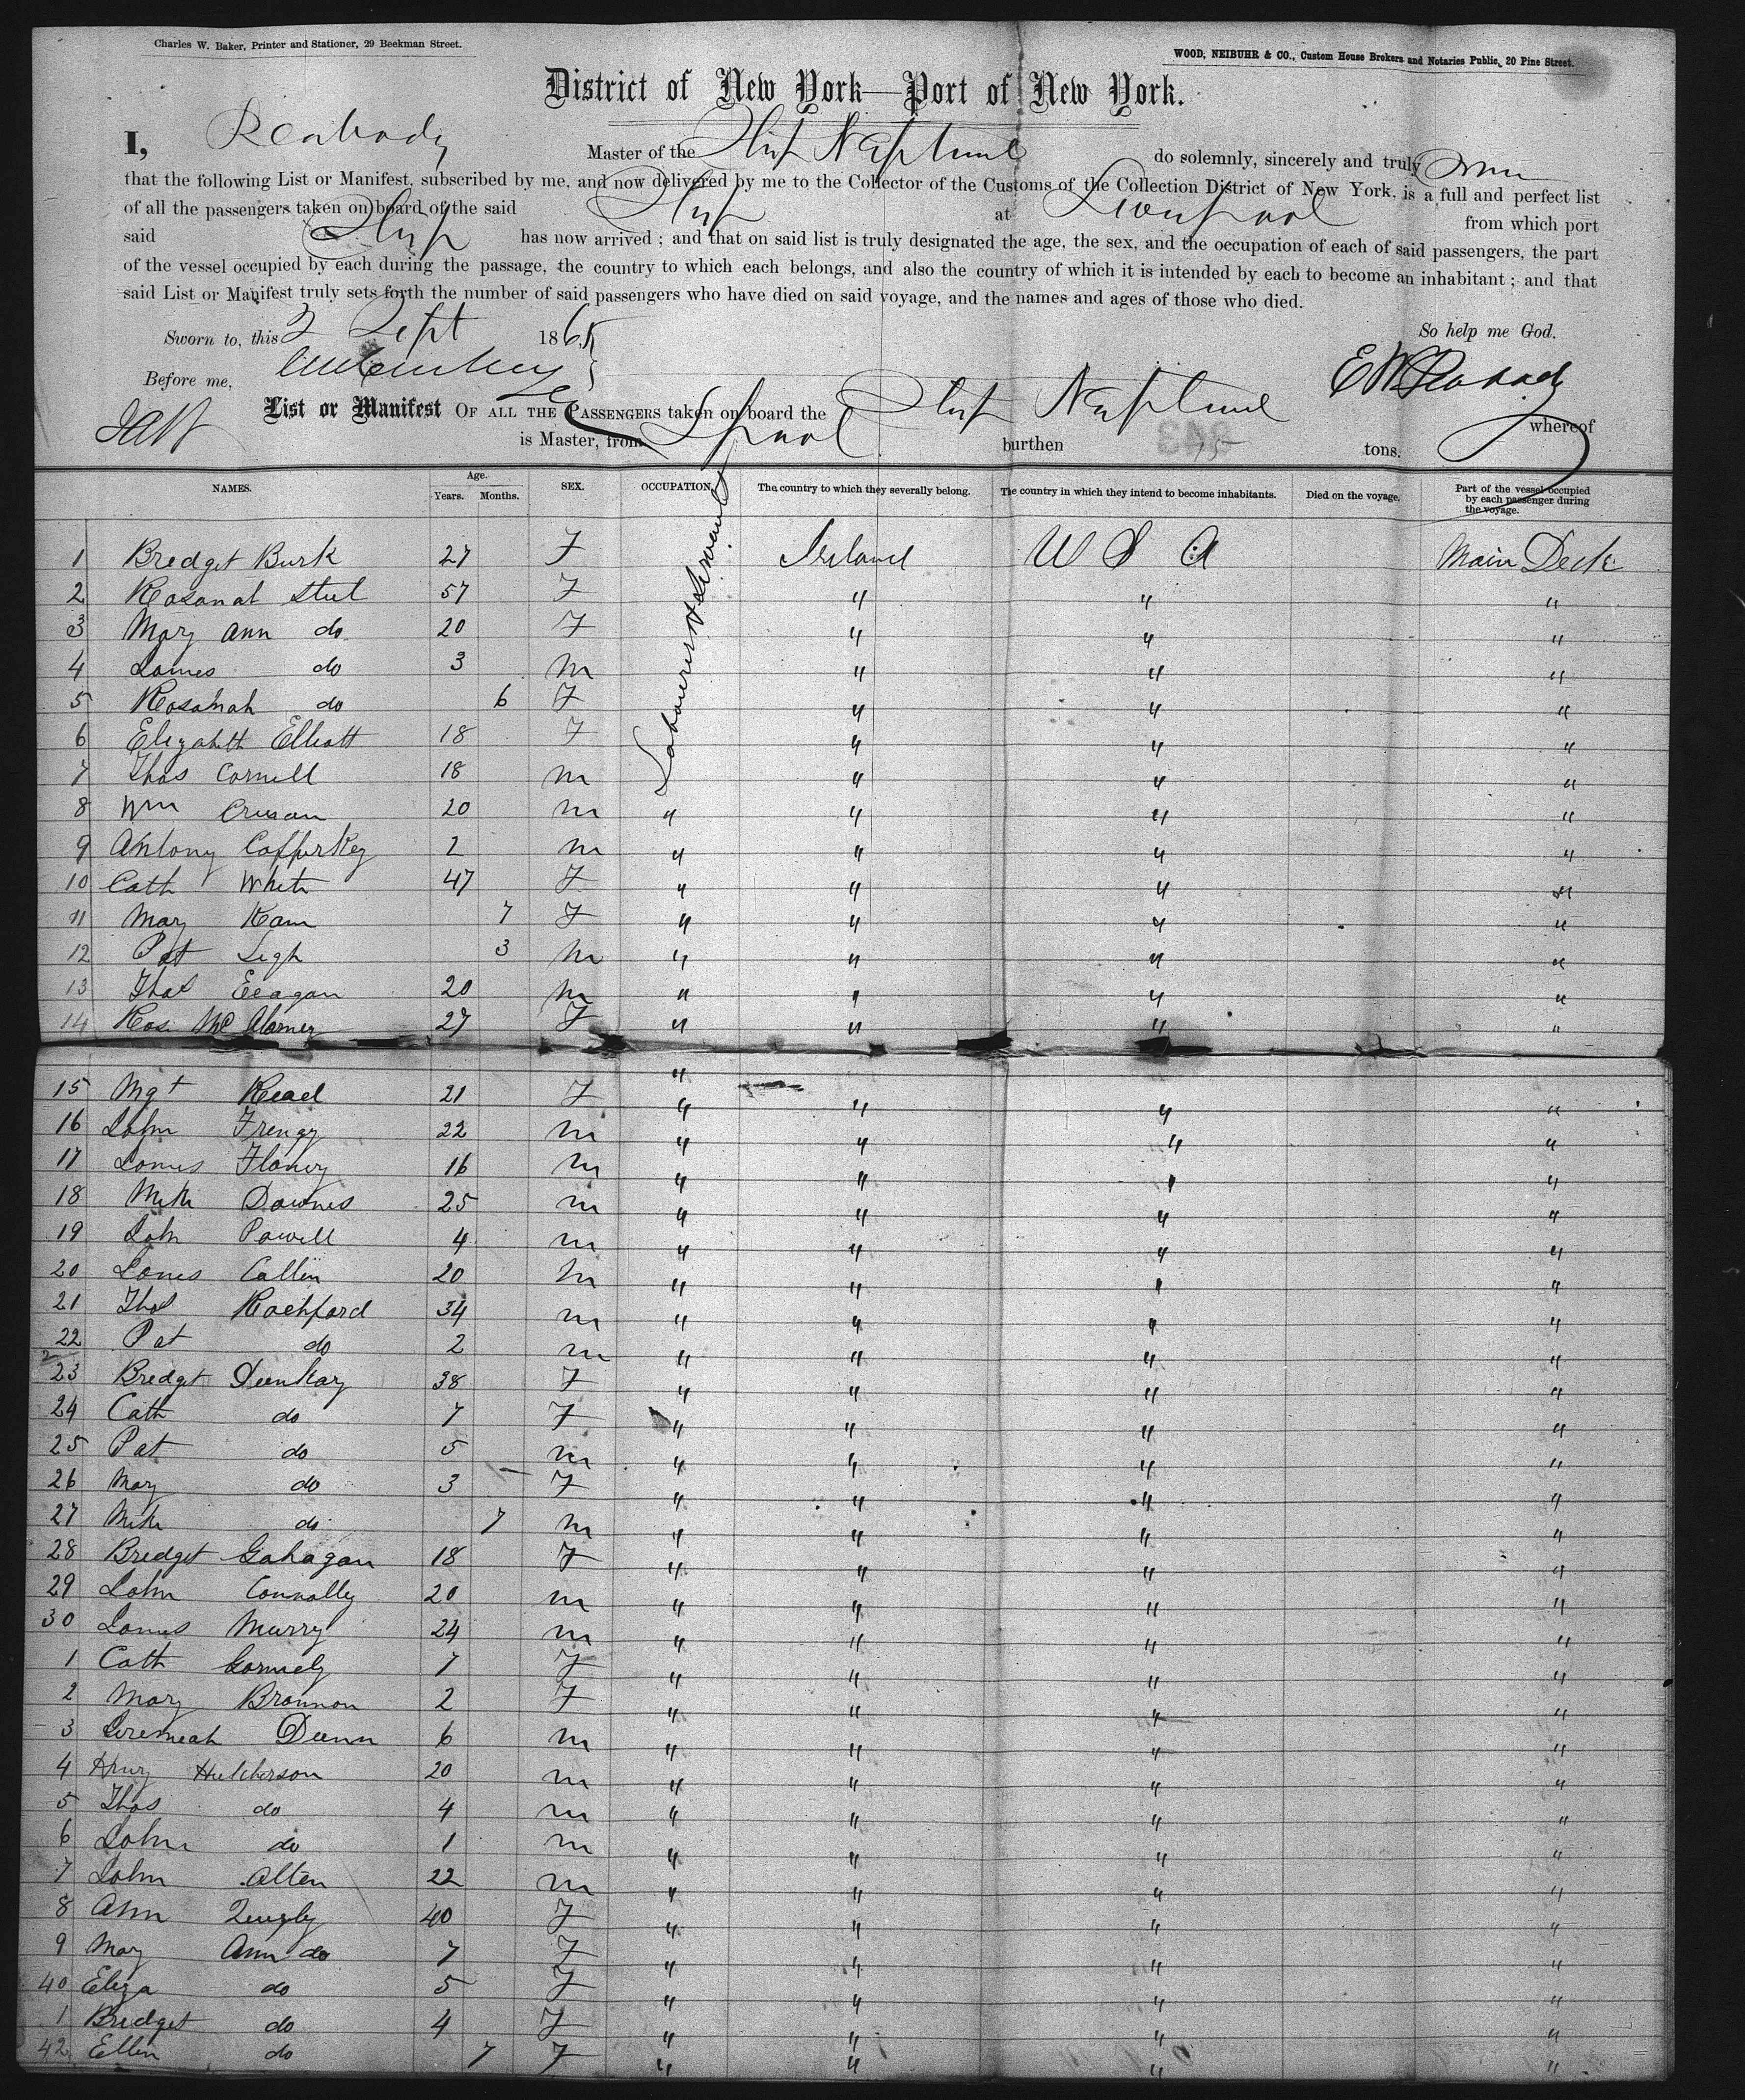 Charles W. Baker, Printer and Stationer, 29 Beekman Street.
WOOD, NEIBUHR & CO., Custom House Brokers and Notaries Public, 20 Pine Street.
District of New York—Port of New York.
I, Peabody Master of the Ship Neptune do solemnly, sincerely and truly
that the following List or Manifest, subscribed by me, and now delivered by me to the Collector of the Customs of the Collection District of New York, is a full and perfect list
of all the passengers taken on board of the said Ship at Liverpool from which port
said Ship has now arrived ; and that on said list is truly designated the age, the sex, and the occupation of each of said passengers, the part
of the vessel occupied by each during the passage, the country to which each belongs, and also the country of which it is intended by each to become an inhabitant ; and that
said List or Manifest truly sets forth the number of said passengers who have died on said voyage, and the names and ages of those who died.
Sworn to, this 2 Sept 1865 So help me God.
Before me, E W Peabody
List or Manifest OF ALL THE PASSENGERS taken on board the Ship Neptune whereof
is Master, from L pool burthen tons.
NAMES. Age. Years. Months. SEX. OCCUPATION. The country to which they severally belong. The country in which they intend to become inhabitants. Died on the voyage. Part of the vessel occupied by each passenger during the voyage.
Labourers & Servants
1 Bredget Burk 27 F Ireland U S A Main Deck
2 Rosanah Steel 57 F " " "
3 Mary Ann do 20 F " " "
4 James do 3 m " " "
5 Rosanah do 6 F " " "
6 Elizabeth Elliott 18 F " " "
7 Thos Cornell 18 m " " "
8 Wm 20 m " " " "
9 Antony Cafferkey 2 m " " " "
10 Cath White 47 F " " " "
11 Mary Kam 7 F " " " "
12 Pat Legh 3 m " " " "
13 Thos Eeagan 20 m " " " "
14 Ros. 27 F " " " "
15 Mgt Read 21 F " " " "
16 John 22 m " " " "
17 James 16 m " " " "
18 Mike Downes 25 m " " " "
19 John Powell 4 m " " " "
20 James Callen 20 m " " " "
21 Thos Rochford 34 m " " " "
22 Pat do 2 m " " " "
23 Bredget Dunkay 38 F " " " "
24 Cath do 7 F " " " "
25 Pat do 5 m " " " "
26 Mary do 3 F " " " "
27 Mike do 7 m " " " "
28 Bredget Gahagan 18 F " " " "
29 John Connolly 20 m " " " "
30 James Murry 24 m " " " "
1 Cath Gormely 7 F " " " "
2 Mary Brannon 2 F " " " "
3 Jeremeah Dunn 6 m " " " "
4 Henry Hutcherson 20 m " " " "
5 Thos do 4 m " " " "
6 John do 1 m " " " "
7 John Allen 22 m " " " "
8 Ann Quigly 40 F " " " "
9 Mary Ann do 7 F " " " "
40 Eliza do 5 F " " " "
1 Bredget do 4 F " " " "
42 Ellen do 7 F " " " "